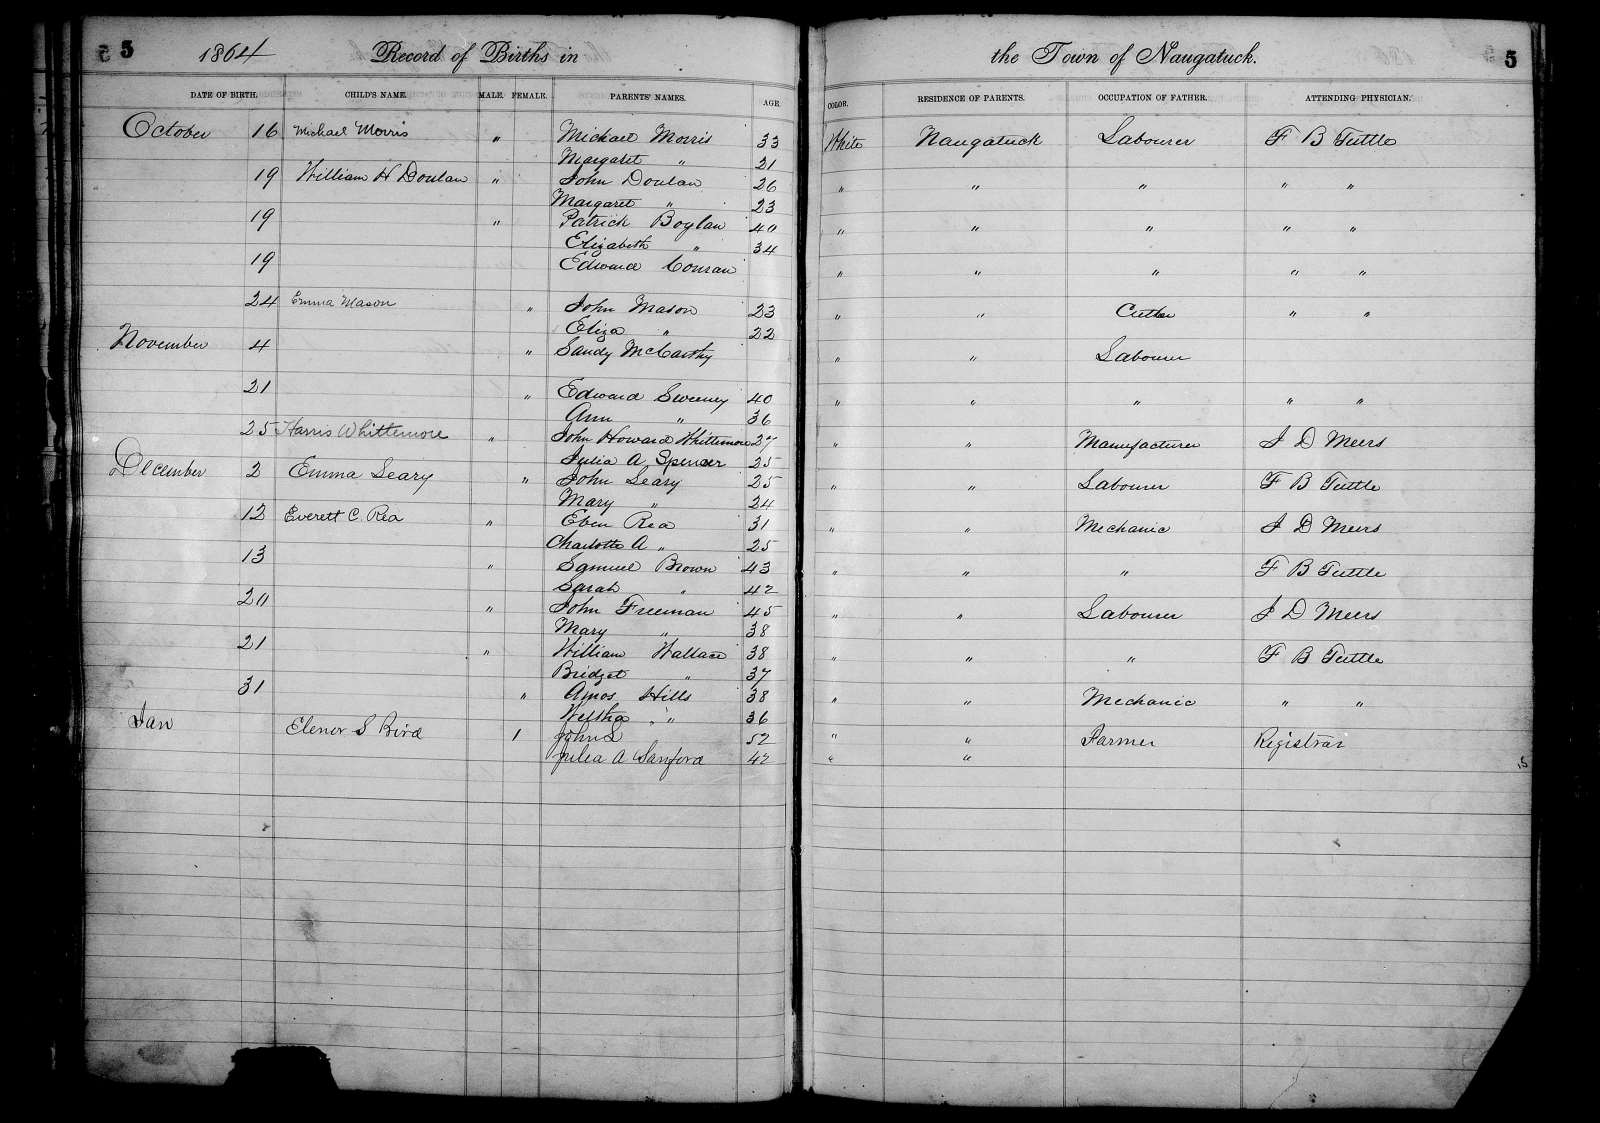 5 1864 Record of Births in the Town of Naugatuck. 5
DATE OF BIRTH. CHILD'S NAME. MALE. FEMALE. PARENTS' NAMES. AGE. COLOR. RESIDENCE OF PARENTS. OCCUPATION OF FATHER. ATTENDING PHYSICIAN.
October 16 Michael Morris " Michael Morris 33 White Naugatuck Labourer F B Tuttle
Margaret " 21
19 William H Doulan " John Doulan 26 " " " " "
Margaret " 23
19 " Patrick Boylan 40 " " " " "
Elizabeth " 34
19 Edward Conran " " " " "
24 Emma Mason " John Mason 23 " " Cutler " "
Eliza " 22
November 4 " Sandy McCarthy " " Labourer
21 " Edward Sweeney 40 " " " " "
Ann " 36
25 Harris Whittemore " John Howard Whittemore 27 " " Manufacturer J D Meers
Julia A Spencer 25
December 2 Emma Leary " John Leary 25 " " Labourer F B Tuttle
Mary " 24
12 Everett C. Rea " Eben Rea 31 " " Mechanic J D Meers
Charlotte A " 25
13 " Samuel Brown 43 " " " F B Tuttle
Sarah " 42
20 " John Freeman 45 " " Labourer J D Meers
Mary " 38
21 " William Wallace 38 " " " F B Tuttle
Bridget " 37
31 " Amos Hills 38 " " Mechanic " "
" 36
Jan Elenor S Bird 1 John S 52 " " Farmer Registrar
Julia A Sanford 42 " "